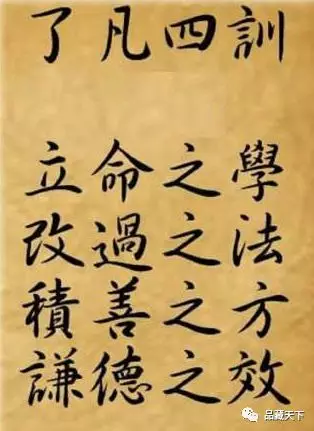 了凡四訓
立命之學
改過之法
積善之方
謙德之效
品藏天下